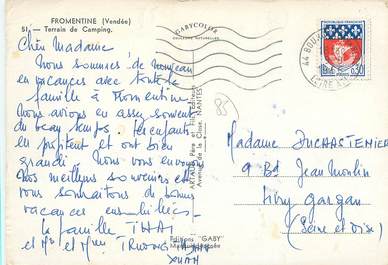 FROMENTINE (Vendée)
51. - Terrain de Camping.
GABYCOLOR
Chère Madame
Nous sommes de nouveau
en vacances avec toute la
famille à Fromentine.
Nous avions eu assez souvent
du beau temps. Les enfants
en profitent et ont bien
grandi. Nous vous envoyons
nos meilleurs souvenirs et
vous souhaitons de bonnes
vacances
La famille THAI
et Mr et Mme TRUONG
XUAN
ARTAUD Père et Fils Editeurs
Avenue de la Close, NANTES
Editions "GABY"
44 BOUA
LOIRE
REPUBLIQUE FRANÇAISE
0,30
85
Madame DUCHASTENIER
9 Bd Jean Moulin
Livry Gargan
(Seine et Oise)